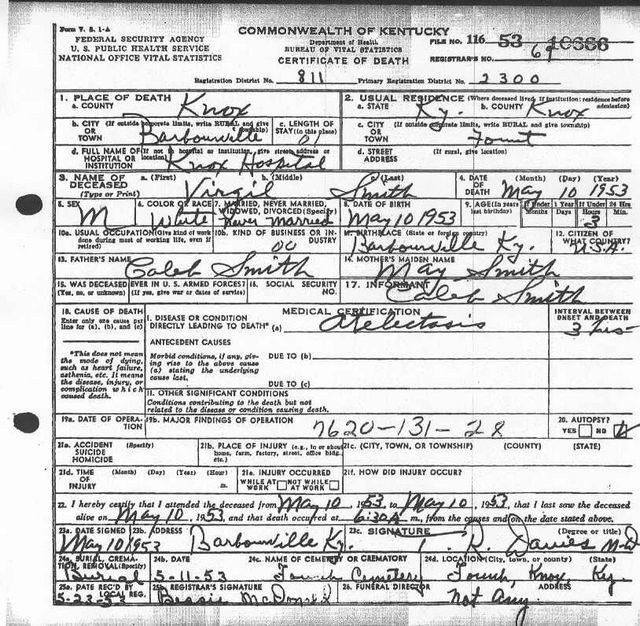 Form V. S. 1-A
FEDERAL SECURITY AGENCY
U. S. PUBLIC HEALTH SERVICE
NATIONAL OFFICE VITAL STATISTICS
COMMONWEALTH OF KENTUCKY
Department of Health
BUREAU OF VITAL STATISTICS
CERTIFICATE OF DEATH
FILE NO. 116 53 10666
REGISTRAR'S NO. 69
Registration District No. 811 Primary Registration District No. 2300
1. PLACE OF DEATH
a. COUNTY Knox
2. USUAL RESIDENCE (Where deceased lived. If institution: residence before admission)
a. STATE Ky. b. COUNTY Knox
b. CITY (If outside corporate limits, write RURAL and give township)
OR TOWN Barbourville
c. LENGTH OF STAY (in this place)
c. CITY (If outside corporate limits, write RURAL and give township)
OR TOWN Fount
d. FULL NAME OF (If not in hospital or institution, give street address or location)
HOSPITAL OR INSTITUTION Knox Hospital
d. STREET ADDRESS (If rural, give location)
3. NAME OF DECEASED (Type or Print)
a. (First) b. (Middle) c. (Last)
Virgil Smith
4. DATE OF DEATH (Month) (Day) (Year)
May 10 1953
5. SEX M
6. COLOR OR RACE White
7. MARRIED, NEVER MARRIED, WIDOWED, DIVORCED (Specify) Never Married
8. DATE OF BIRTH May 10 1953
9. AGE (In years last birthday) If Under 1 Year Months Days If Under 24 Hrs. Hours Min.
3
10a. USUAL OCCUPATION (Give kind of work done during most of working life, even if retired)
10b. KIND OF BUSINESS OR INDUSTRY
11. BIRTHPLACE (State or foreign country) Barbourville Ky.
12. CITIZEN OF WHAT COUNTRY? U.S.A.
13. FATHER'S NAME Caleb Smith
14. MOTHER'S MAIDEN NAME May Smith
15. WAS DECEASED EVER IN U. S. ARMED FORCES?
(Yes, no, or unknown) (If yes, give war or dates of service)
16. SOCIAL SECURITY NO.
17. INFORMANT Caleb Smith
18. CAUSE OF DEATH
Enter only one cause per line for (a), (b), and (c)
MEDICAL CERTIFICATION
INTERVAL BETWEEN ONSET AND DEATH
I. DISEASE OR CONDITION
DIRECTLY LEADING TO DEATH* (a) Atelectasis 3 hrs
ANTECEDENT CAUSES
*This does not mean the mode of dying, such as heart failure, asthenia, etc. It means the disease, injury, or complication which caused death.
Morbid conditions, if any, giving rise to the above cause (a) stating the underlying cause last.
DUE TO (b)
DUE TO (c)
II. OTHER SIGNIFICANT CONDITIONS
Conditions contributing to the death but not related to the disease or condition causing death.
19a. DATE OF OPERATION
19b. MAJOR FINDINGS OF OPERATION
7620-131-28
20. AUTOPSY?
YES NO
21a. ACCIDENT SUICIDE HOMICIDE (Specify)
21b. PLACE OF INJURY (e.g., in or about home, farm, factory, street, office bldg., etc.)
21c. (CITY, TOWN, OR TOWNSHIP) (COUNTY) (STATE)
21d. TIME OF INJURY (Month) (Day) (Year) (Hour) m.
21e. INJURY OCCURRED
WHILE AT WORK NOT WHILE AT WORK
21f. HOW DID INJURY OCCUR?
22. I hereby certify that I attended the deceased from May 10, 1953, to May 10, 1953, that I last saw the deceased
alive on May 10, 1953, and that death occurred at 6:30A m., from the causes and on the date stated above.
23a. DATE SIGNED May 10 1953
23b. ADDRESS Barbourville Ky.
23c. SIGNATURE (Degree or title)
T. R. Davies M.D.
24a. BURIAL, CREMATION, REMOVAL (Specify) Burial
24b. DATE 5-11-53
24c. NAME OF CEMETERY OR CREMATORY
24d. LOCATION (City, town, or county) (State)
Knox, Ky.
25a. DATE REC'D BY LOCAL REG. 5-23-53
25b. REGISTRAR'S SIGNATURE Bessie McDonald
26. FUNERAL DIRECTOR ADDRESS
Not Any